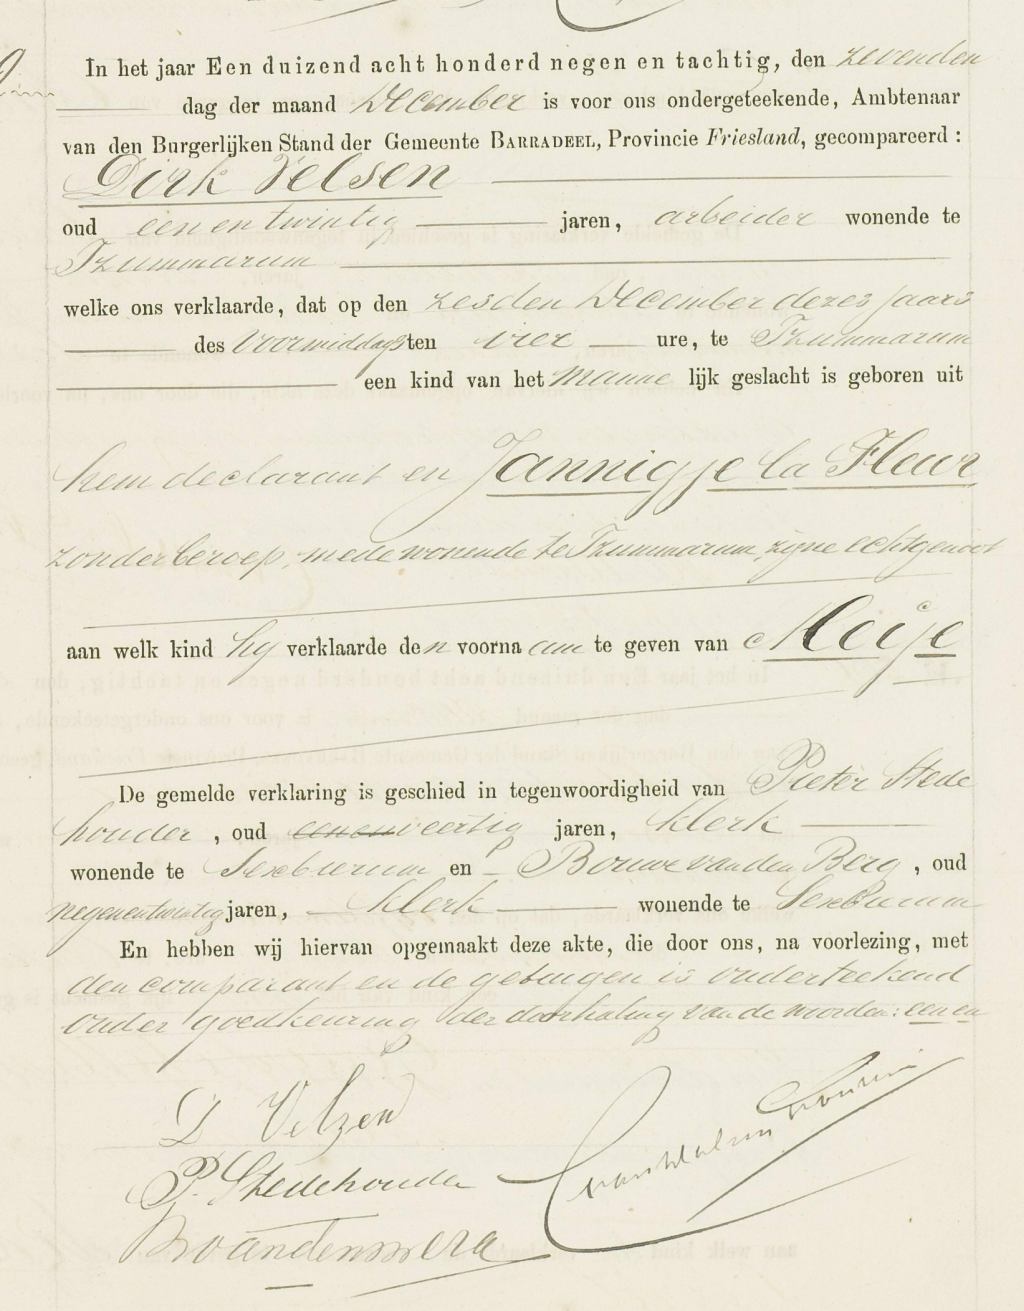 In het jaar Een duizend acht honderd negen en tachtig, den zevenden
dag der maand December is voor ons ondergeteekende, Ambtenaar
van den Burgerlijken Stand der Gemeente BARRADEEL, Provincie Friesland, gecompareerd :
Dirk Velsen
oud een en twintig jaren, arbeider wonende te
Tzummarum
welke ons verklaarde, dat op den zesden December dezes jaars
des voormiddags ten vier ure, te Tzummarum
een kind van het manne lijk geslacht is geboren uit
hem declarant en Jannigje la Fleur
zonder beroep, mede wonende te Tzummarum, zijne echtgenoot
aan welk kind hij verklaarde den voornaam te geven van Meije
De gemelde verklaring is geschied in tegenwoordigheid van Pieter Stede
houder, oud eenenveertig jaren, klerk
wonende te Sexbierum en Bouwe van den Berg, oud
negenentwintig jaren, klerk wonende te Sexbierum
En hebben wij hiervan opgemaakt deze akte, die door ons, na voorlezing, met
den comparant en de getuigen is onderteekend
onder goedkeuring der doorhaling van de woorden: een en
D Velzen
P. Stedehouder